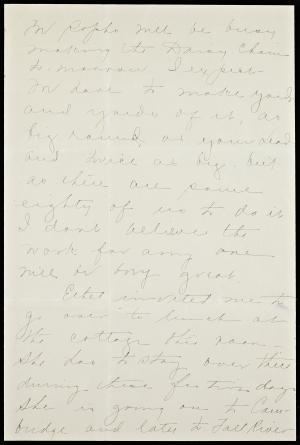 We Sophs will be busy
making the Daisy Chain
to-morrow I expect.
We have to make yards
and yards of it, as
big round as your head
and twice as big. but
as there are some
eighty of us to do it
I dont believe the
work for any one
will be very great.
Ethel invited me to
go over to lunch at
the cottage this noon.
She has to stay over there
during these festive days
She is going on to Cam-
bridge and later to Fall River